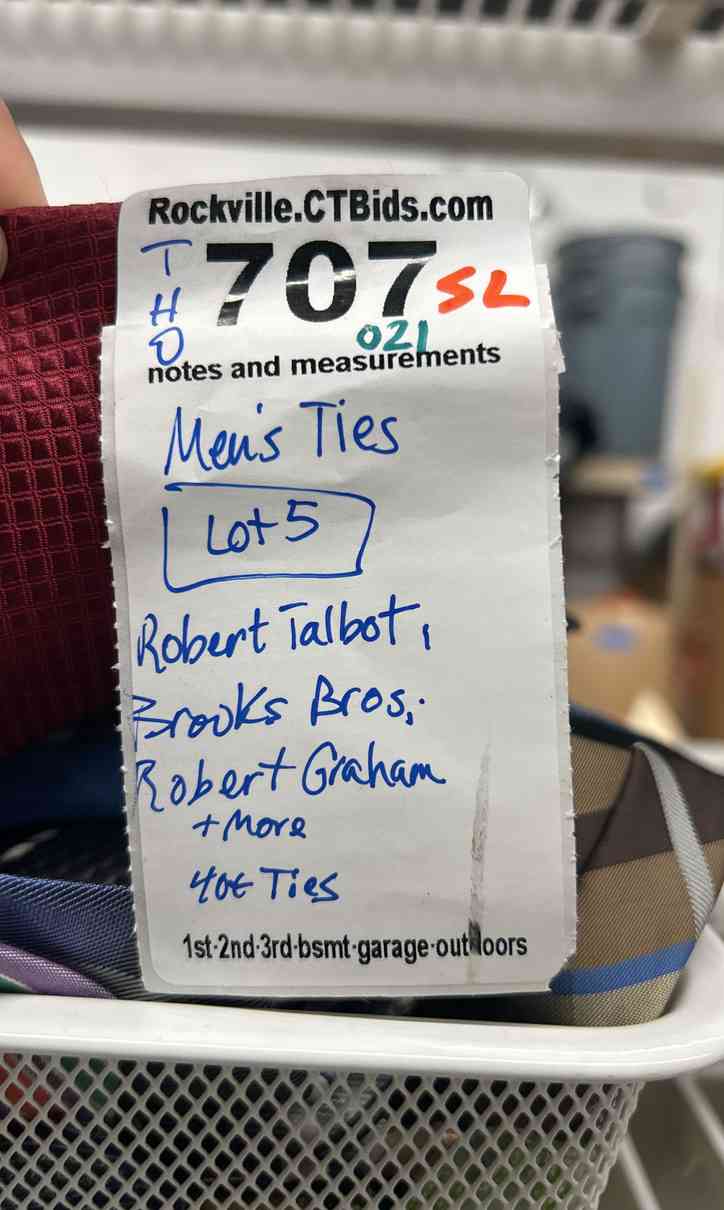 Rockville.CTBids.com
THO
707 SL
021
notes and measurements
Men's Ties
Lot 5
Robert Talbot,
Brooks Bros,.
Robert Graham
+ More
40+ Ties
1st-2nd-3rd-bsmt-garage-outdoors